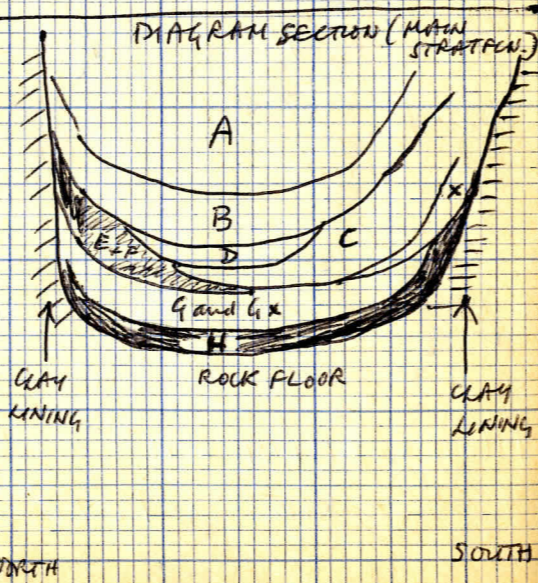 DIAGRAM SECTION (MAIN
STRATFCN.)
A
B
X
C
E+F
D
G and Gx
H
ROCK FLOOR
CLAY
LINING
CLAY
LINING
NORTH
SOUTH